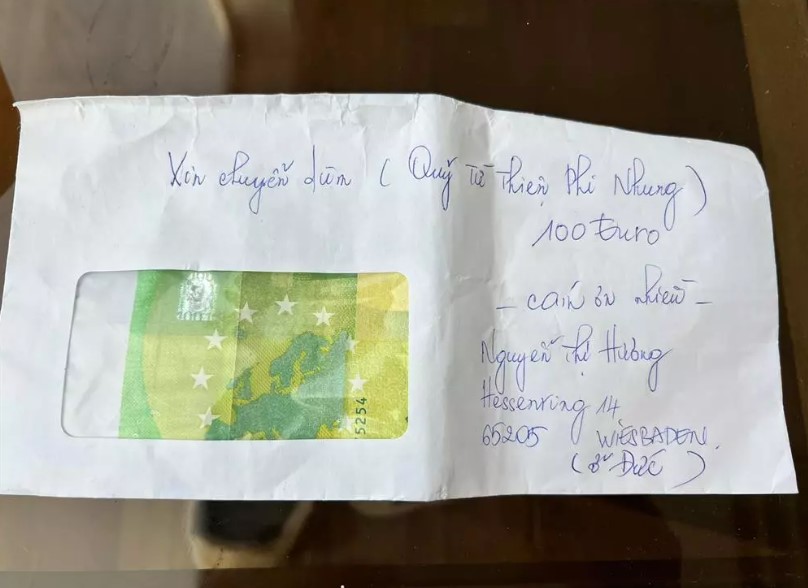 Xin chuyển dùm ( Quỹ từ Thiện Phi Nhung )
100 Euro
- cám ơn nhiều -
Nguyễn Thị Hường
Hessenring 14
65205 WIESBADEN.
( ở Đức )
100
5254